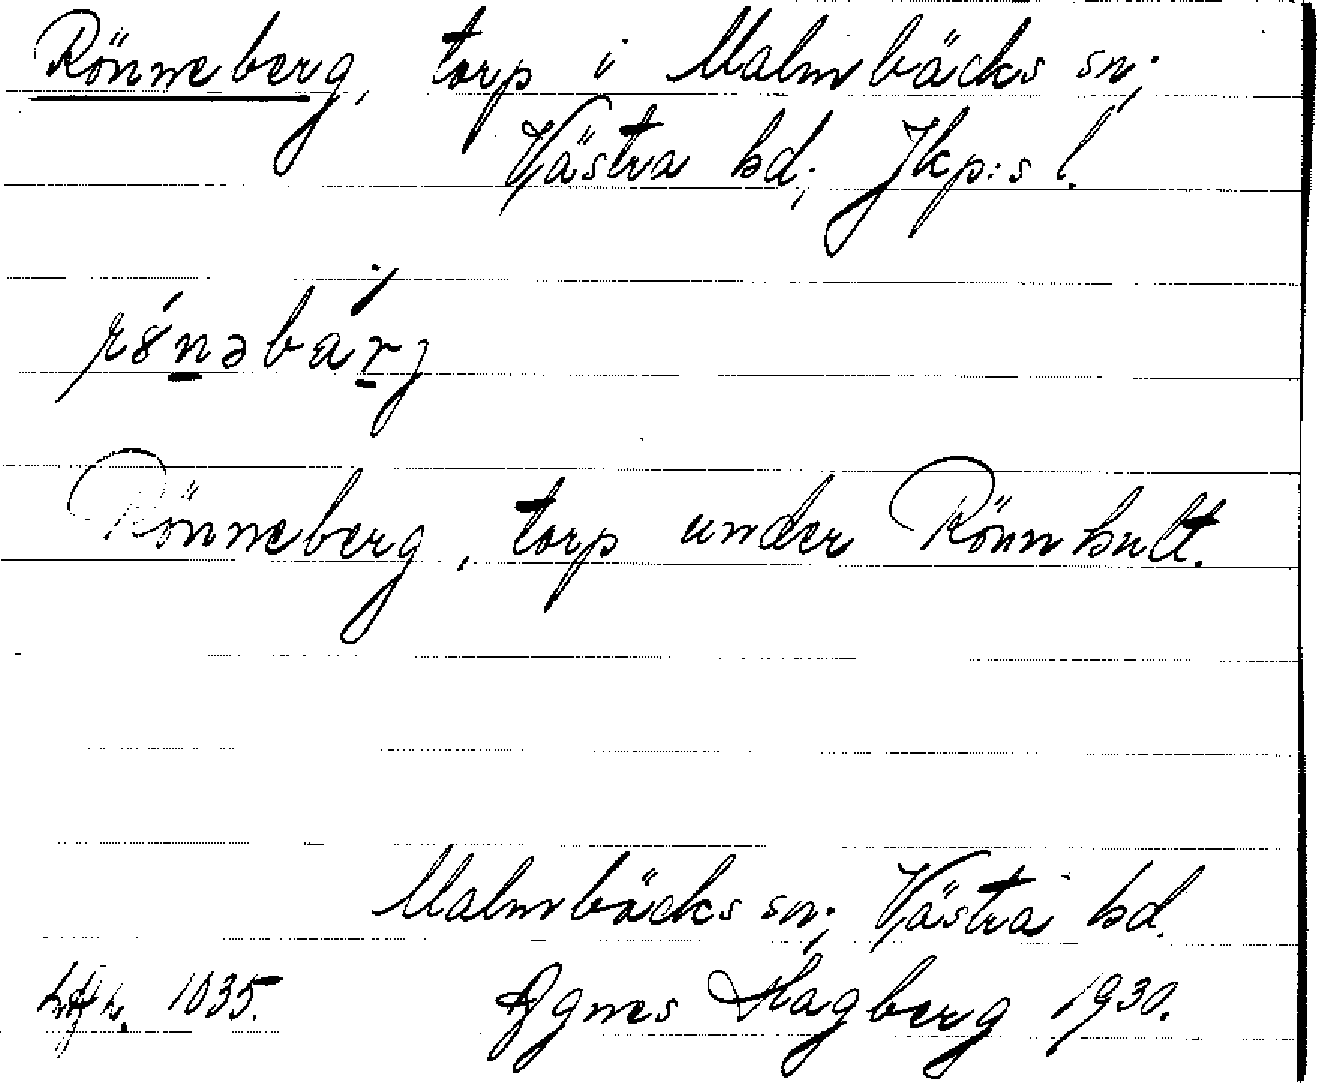 Rönneberg, torp i Malmbäcks sn;
Västra hd; Jkp:s l.
Rönneberg, torp under Rönnhult.
Malmbäcks sn; Västra hd.
1035. Agnes Hagberg 1930.